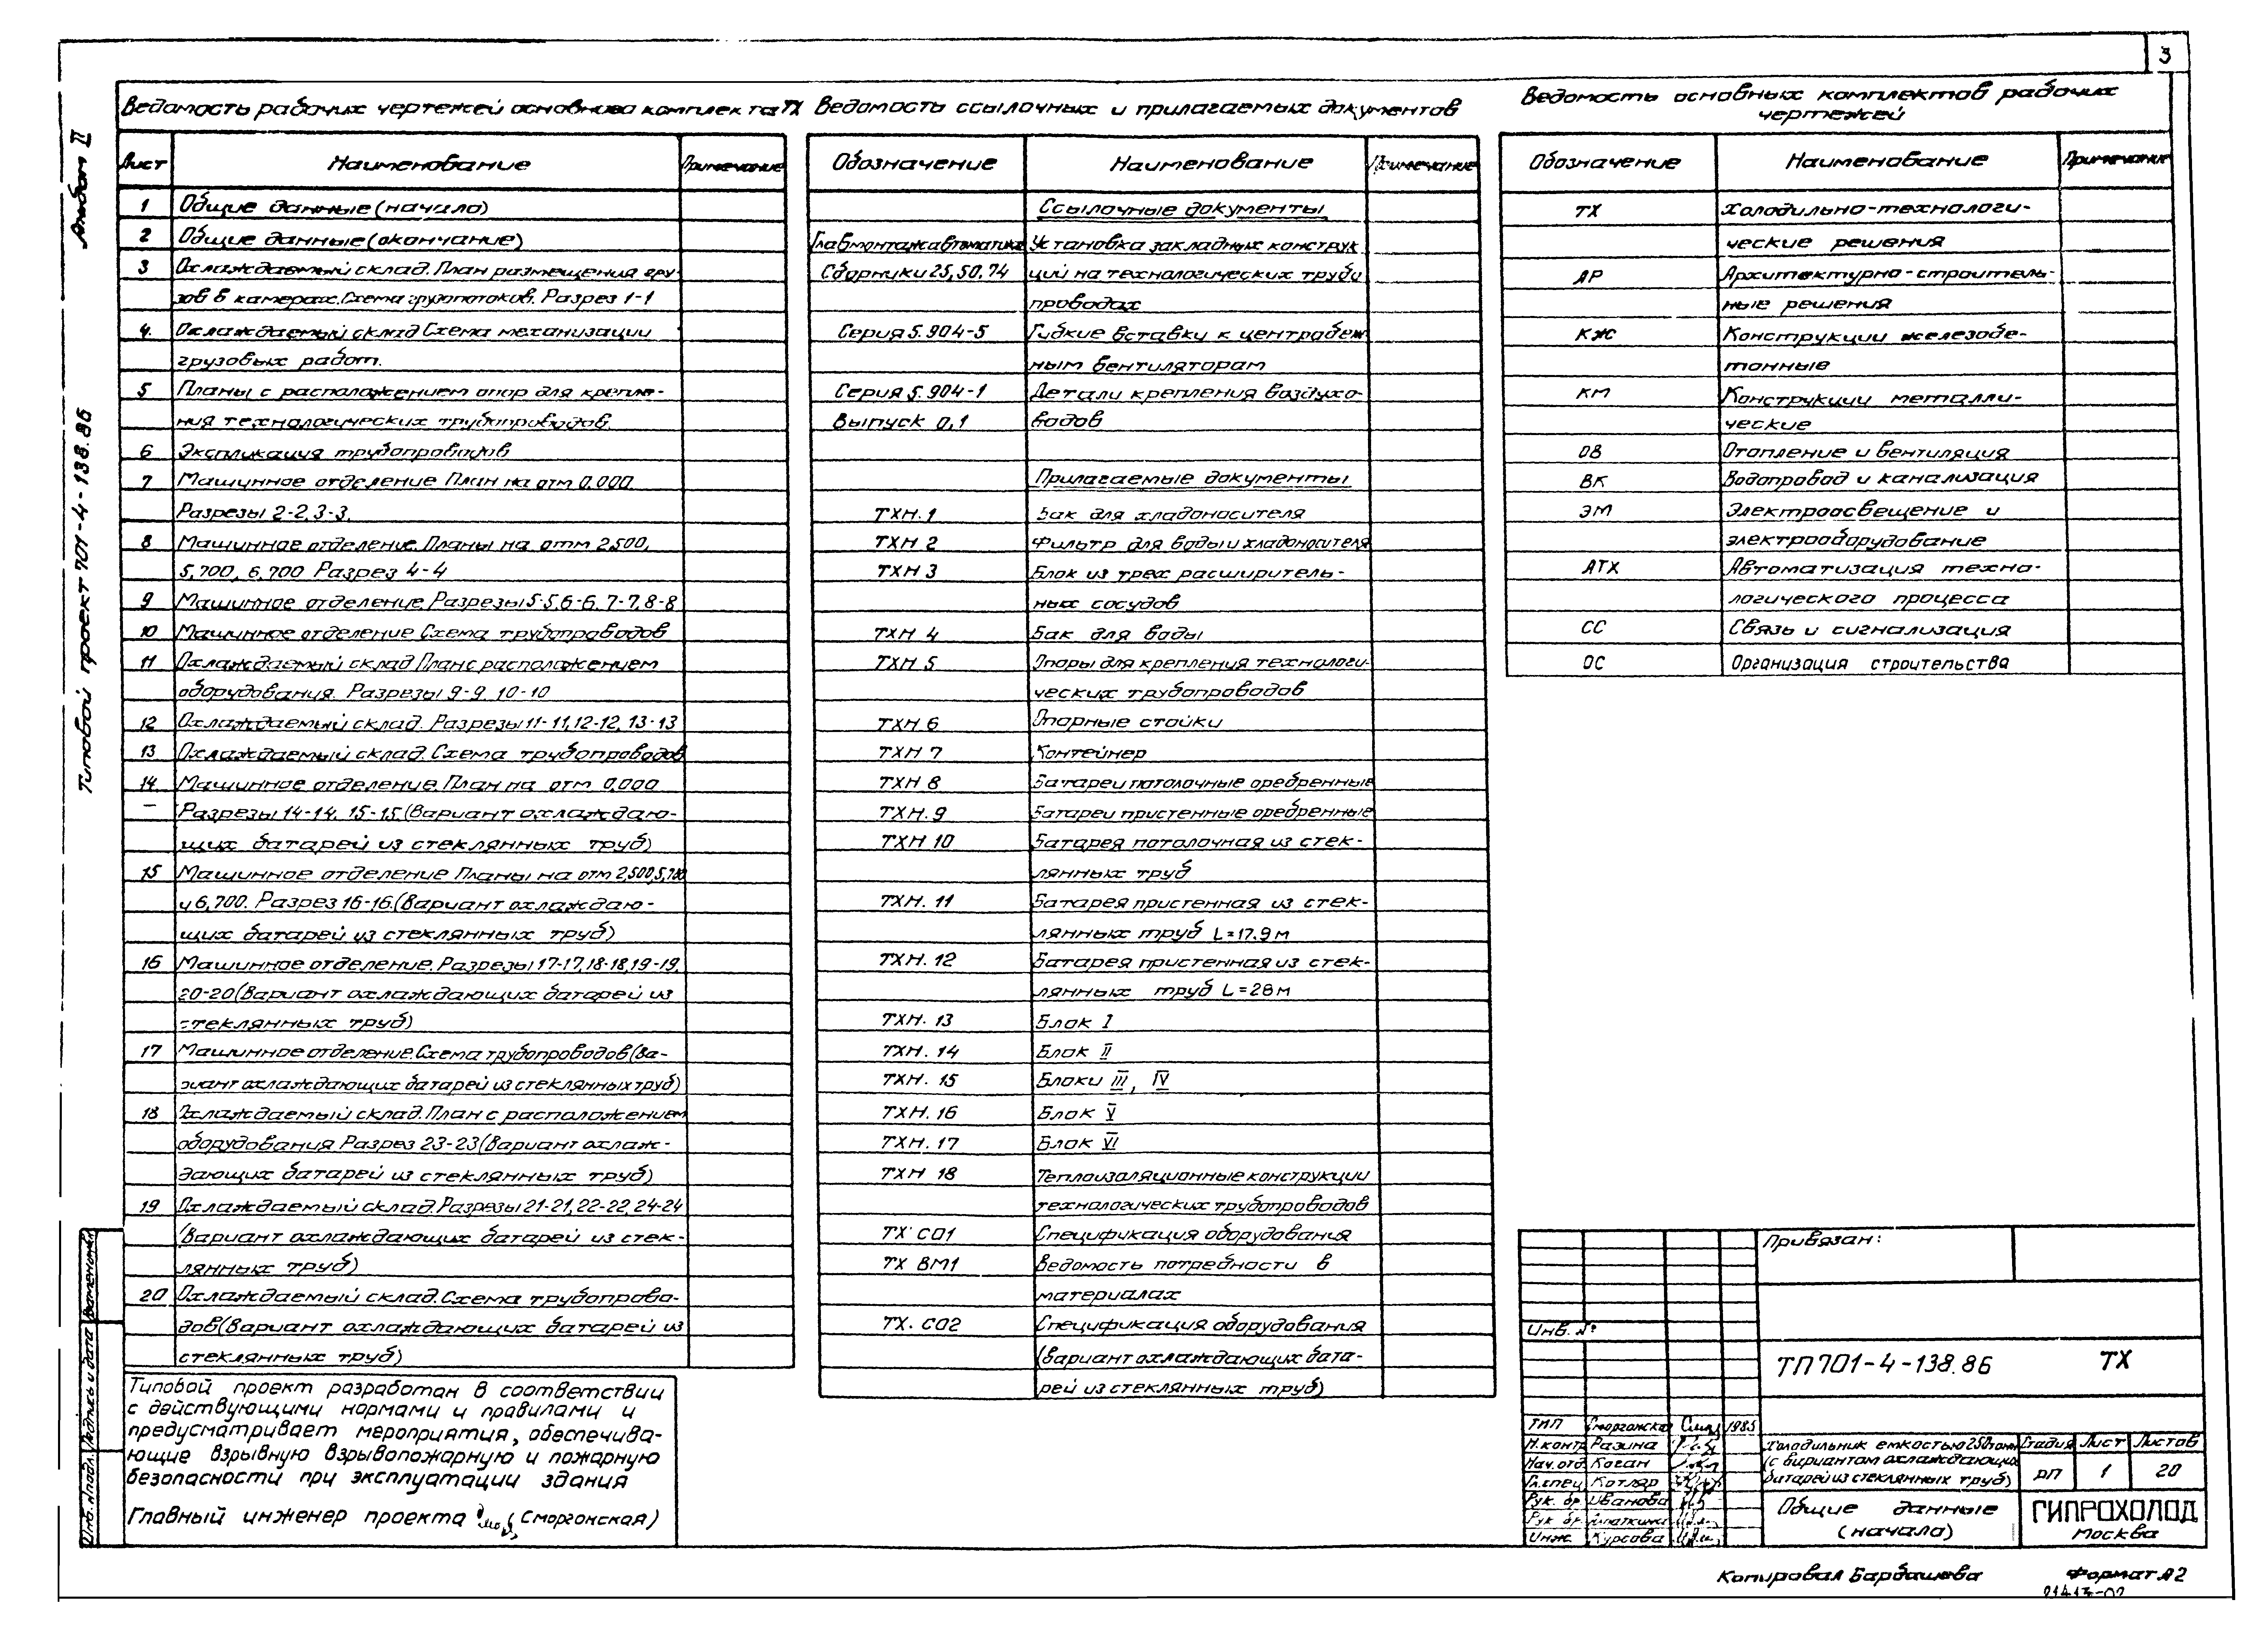 3
Альбом II
Типовой проект 701-4-138.86
Ведомость рабочих чертежей основного комплекта ТХ
Лист Наименование Примечание
1 Общие данные (начало)
2 Общие данные (окончание)
3 Охлаждаемый склад. План размещения гру-
зов в камерах. Схема грузопотоков. Разрез 1-1
4. Охлаждаемый склад Схема механизации
грузовых работ.
5 Планы с расположением опор для крепле-
ния технологических трубопроводов.
6 Экспликация трубопроводов
7 Машинное отделение План на отм 0,000.
Разрезы 2-2, 3-3.
8 Машинное отделение. Планы на отм 2,500,
5,700, 6,700 Разрез 4-4
9 Машинное отделение Разрезы 5-5, 6-6, 7-7, 8-8
10 Машинное отделение Схема трубопроводов
11 Охлаждаемый склад План с расположением
оборудования. Разрезы 9-9, 10-10
12 Охлаждаемый склад. Разрезы 11-11, 12-12, 13-13
13 Охлаждаемый склад. Схема трубопроводов
14 Машинное отделение План на отм 0,000
Разрезы 14-14, 15-15 (Вариант охлаждаю-
щих батарей из стеклянных труб)
15 Машинное отделение Планы на отм 2,500, 5,700
и 6,700. Разрез 16-16. (Вариант охлаждаю-
щих батарей из стеклянных труб)
16 Машинное отделение. Разрезы 17-17, 18-18, 19-19,
20-20 (Вариант охлаждающих батарей из
стеклянных труб)
17 Машинное отделение. Схема трубопроводов (Ва-
риант охлаждающих батарей из стеклянных труб)
18 Охлаждаемый склад. План с расположением
оборудования Разрез 23-23 (Вариант охлаж-
дающих батарей из стеклянных труб)
19 Охлаждаемый склад. Разрезы 21-21, 22-22, 24-24
(Вариант охлаждающих батарей из стек-
лянных труб)
20 Охлаждаемый склад. Схема трубопрово-
дов (Вариант охлаждающих батарей из
стеклянных труб)
Типовой проект разработан в соответствии
с действующими нормами и правилами и
предусматривает мероприятия, обеспечива-
ющие взрывную взрывопожарную и пожарную
безопасности при эксплуатации здания
Главный инженер проекта (Сморгонская)
Ведомость ссылочных и прилагаемых документов
Обозначение Наименование Примечание
Ссылочные документы
Главмонтажавтоматика Установка закладных конструк
Сборники 25, 50, 74 ций на технологических трубо
проводах
Серия 5.904-5 Гибкие вставки к центробеж
ным вентиляторам
Серия 5.904-1 Детали крепления воздухо-
Выпуск 0,1 водов
Прилагаемые документы
ТХН.1 Бак для хладоносителя
ТХН 2 Фильтр для воды и хладоносителя
ТХН 3 Блок из трех расширитель-
ных сосудов
ТХН 4 Бак для воды
ТХН 5 Опоры для крепления технологи-
ческих трубопроводов
ТХН 6 Опорные стойки
ТХН 7 Контейнер
ТХН 8 Батареи потолочные оребренные
ТХН. 9 Батареи пристенные оребренные
ТХН 10 Батарея потолочная из стек-
лянных труб
ТХН. 11 Батарея пристенная из стек-
лянных труб L=17.9м
ТХН. 12 Батарея пристенная из стек-
лянных труб L=28м
ТХН. 13 Блок I
ТХН. 14 Блок II
ТХН. 15 Блоки III, IV
ТХН. 16 Блок V
ТХН. 17 Блок VI
ТХН 18 Теплоизоляционные конструкции
технологических трубопроводов
ТХ СО1 Спецификация оборудования
ТХ ВМ1 Ведомость потребности в
материалах
ТХ. СО2 Спецификация оборудования
(вариант охлаждающих бата-
рей из стеклянных труб)
Ведомость основных комплектов рабочих
чертежей
Обозначение Наименование Примечание
ТХ Холодильно-технологи-
ческие решения
АР Архитектурно-строитель-
ные решения
КЖ Конструкции железобе-
тонные
КМ Конструкции металли-
ческие
ОВ Отопление и вентиляция
ВК Водопровод и канализация
ЭМ Электроосвещение и
электрооборудование
АТХ Автоматизация техно-
логического процесса
СС Связь и сигнализация
ОС Организация строительства
Привязан:
Инв. №
ТП 701-4-138.86 ТХ
ГИП Сморгонская 1985
Н.контр Разина
Нач.отд. Коган
Гл.спец Котляр
Рук. бр. Иванова
Рук бр.
Инж. Курсова
Холодильник емкостью 250тонн
(с вариантом охлаждающих
батарей из стеклянных труб)
Стадия Лист Листов
РП 1 20
Общие данные
(начало)
ГИПРОХОЛОД
Москва
Инв. № подл. Подпись и дата Взам.инв.№
Копировал Бардашева Формат А2
21413-02